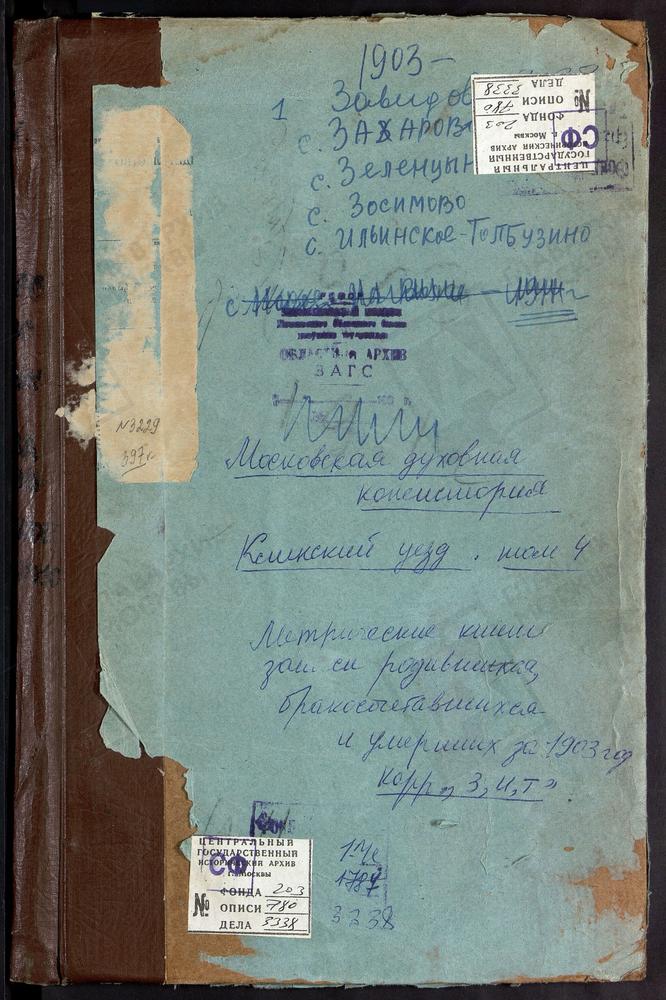 1903-
1 Завидов
с. ЗАХАРОВ
с. Зеленцын
с. Зосимово
с. Ильинское-Толбузино
№
ДЕЛА 3338
ОПИСИ 780
ФОНДА 203
г. Москвы
ИСТОРИЧЕСКИЙ АРХИВ
ГОСУДАРСТВЕННЫЙ
ЦЕНТРАЛЬНЫЙ
СФ
с
ОБЛАСТНОЙ АРХИВ
ЗАГС
N3229
397г
Московская духовная
консистория
Клинский уезд. том 4
Метрические книги
записи родившихся,
бракосочетавшихся
и умерших за 1903 год
корр „З, И, Т"
ЦЕНТРАЛЬНЫЙ
ГОСУДАРСТВЕННЫЙ
ИСТОРИЧЕСКИЙ АРХИВ
г. Москвы
СФ
ФОНДА 203
№ ОПИСИ 780
ДЕЛА 3338
1787
3338